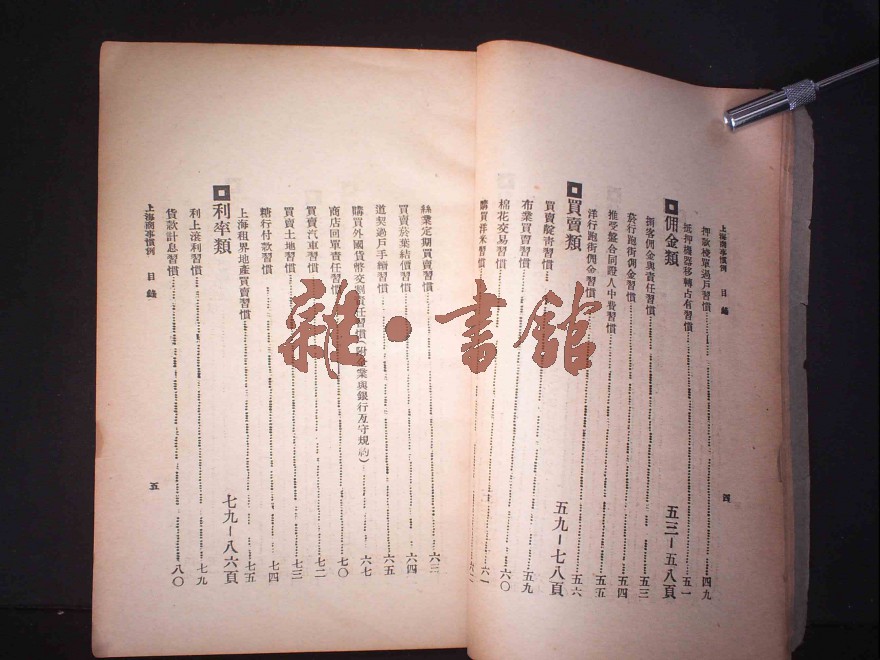 上海商事慣例　目錄
四
押款棧單過戶習慣……四九
抵押機器移轉占有習慣……五一
佣金類……五三—五八頁
掮客佣金與責任習慣……五三
菸行跑街佣金習慣……五四
推受盤合同證人中費習慣……五五
洋行跑街佣金習慣……五六
買賣類……五九—七八頁
買賣靛青習慣
布業買賣習慣……五九
棉花交易習慣……六〇
購買洋米習慣……六一
絲業定期買賣習慣……六三
買賣菸葉結價習慣……六四
道契過戶手續習慣……六五
購買外國貨幣交割責任習慣(附金業與銀行互守規約)……六七
商店回單責任習慣……七〇
買賣汽車習慣……七二
買賣土地習慣……七三
糖行付款習慣……七四
上海租界地產買賣習慣……七五
利率類……七九—八六頁
利上滾利習慣……七九
貨款計息習慣……八〇
上海商事慣例　目錄
五
雜·書館